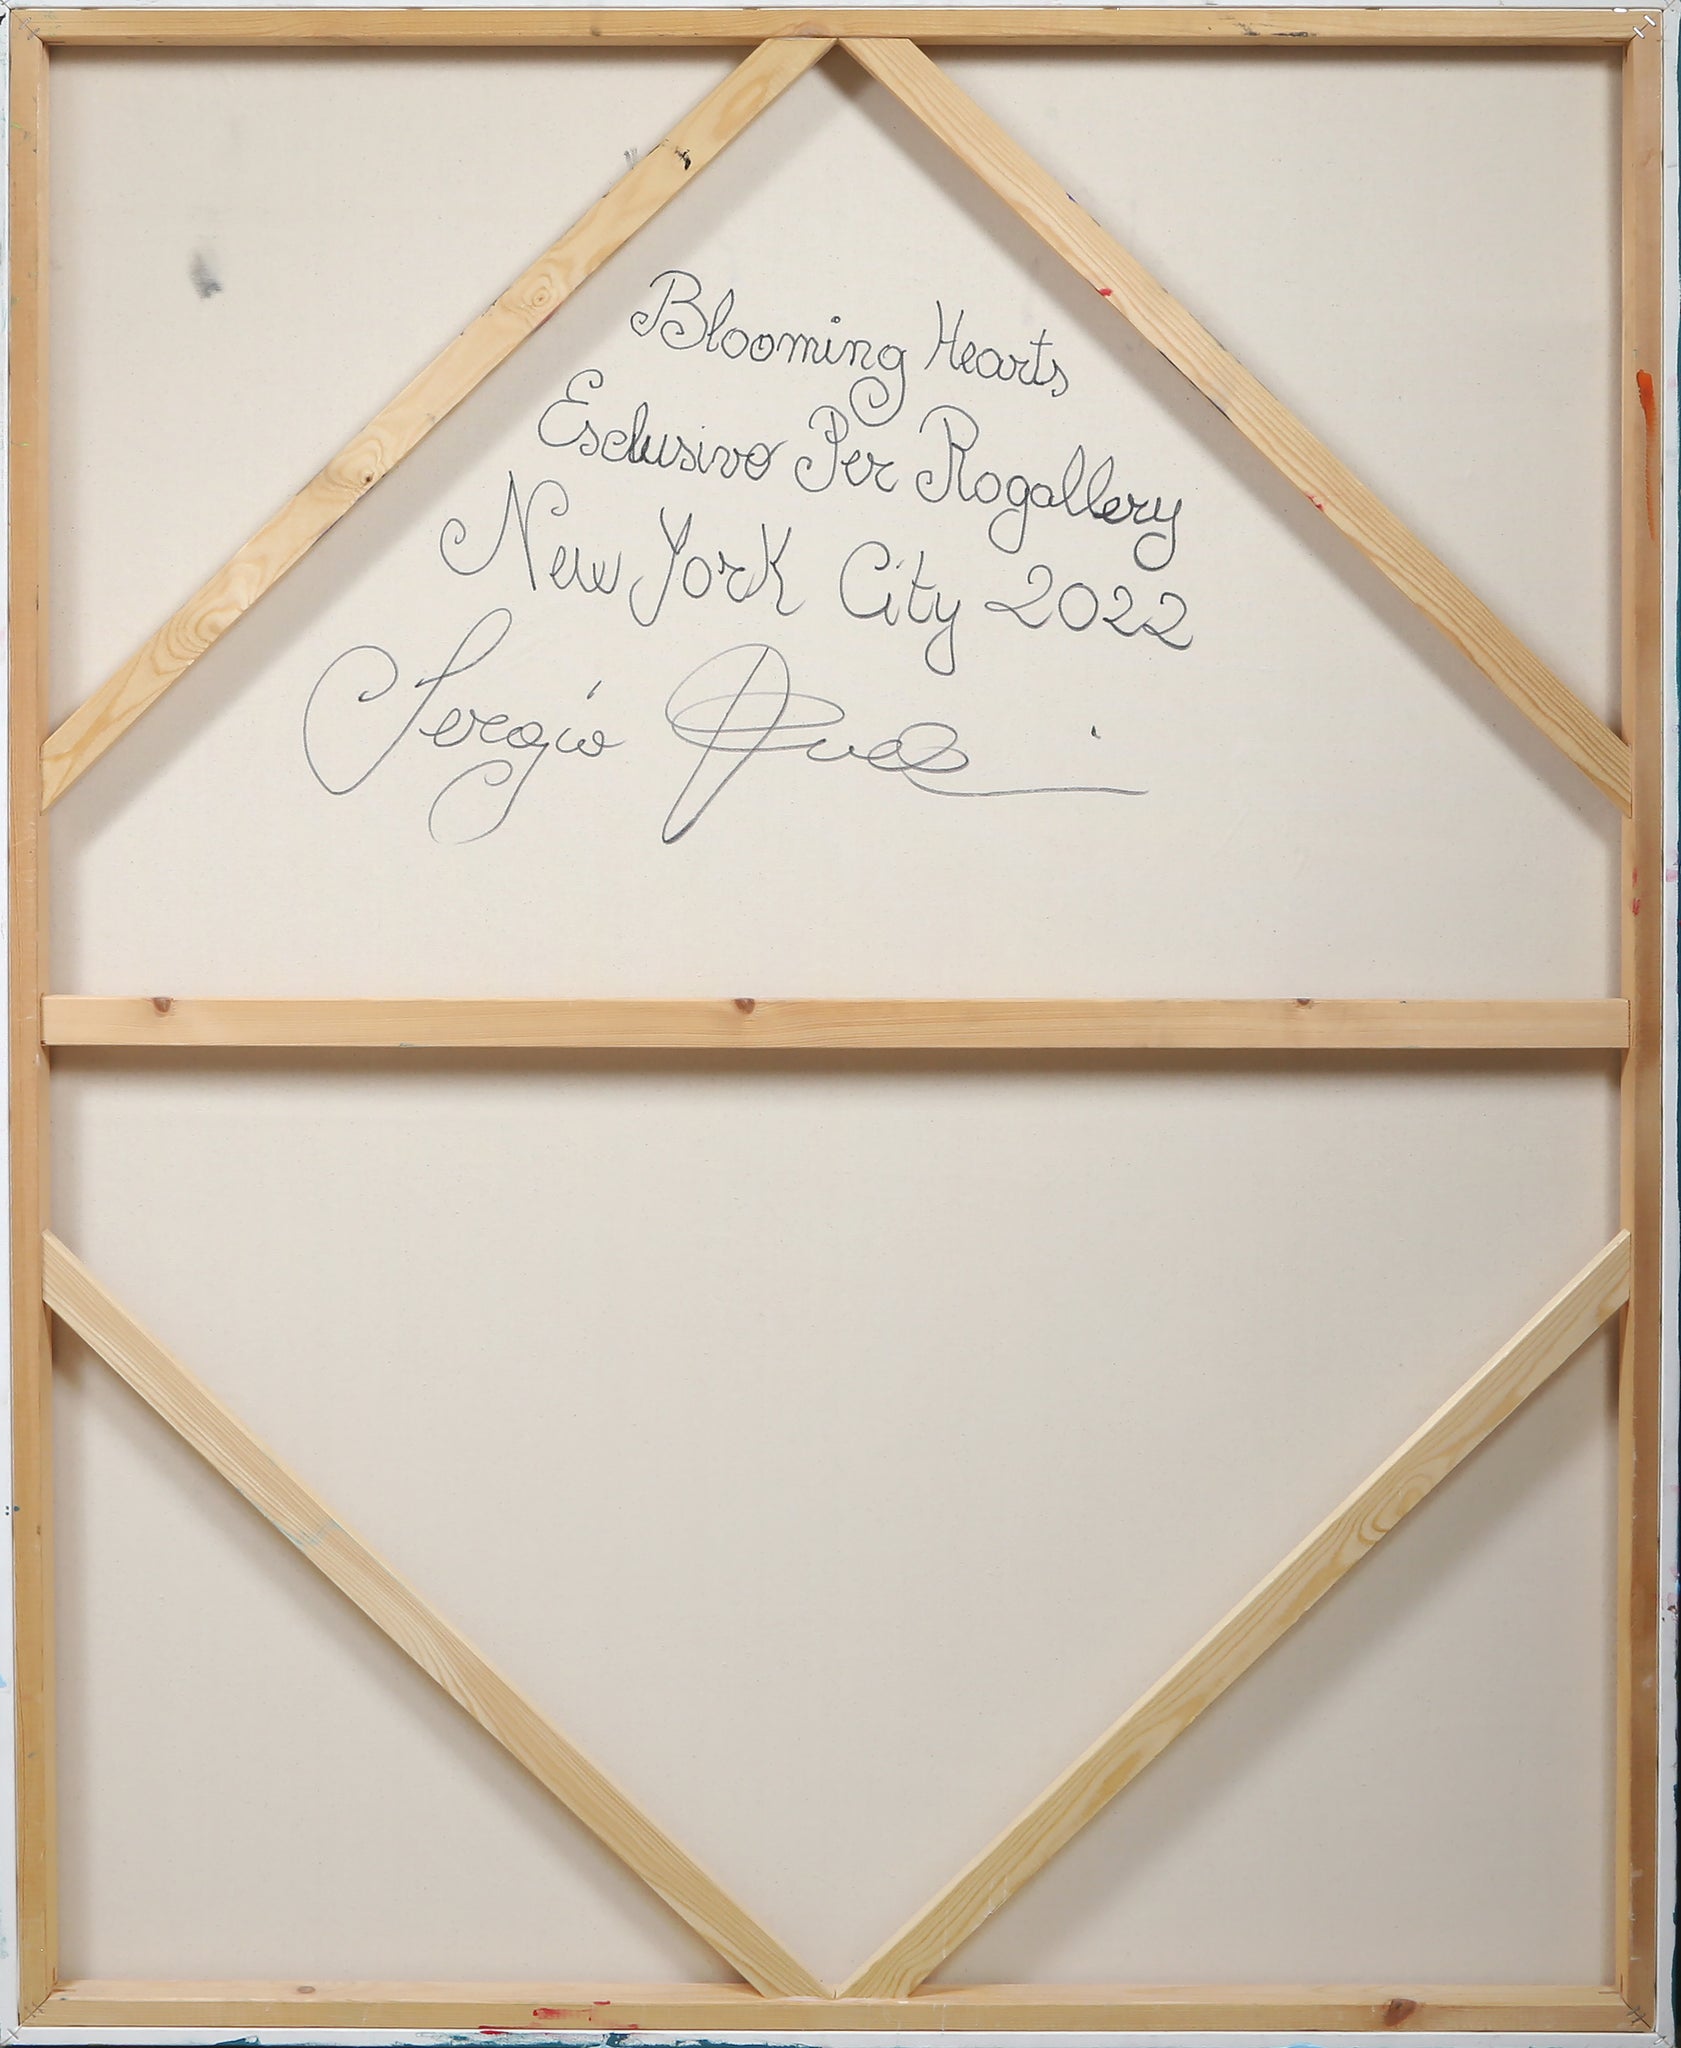 Blooming Hearts
Esclusivo Per Rogallery
New York City 2022
Sergio